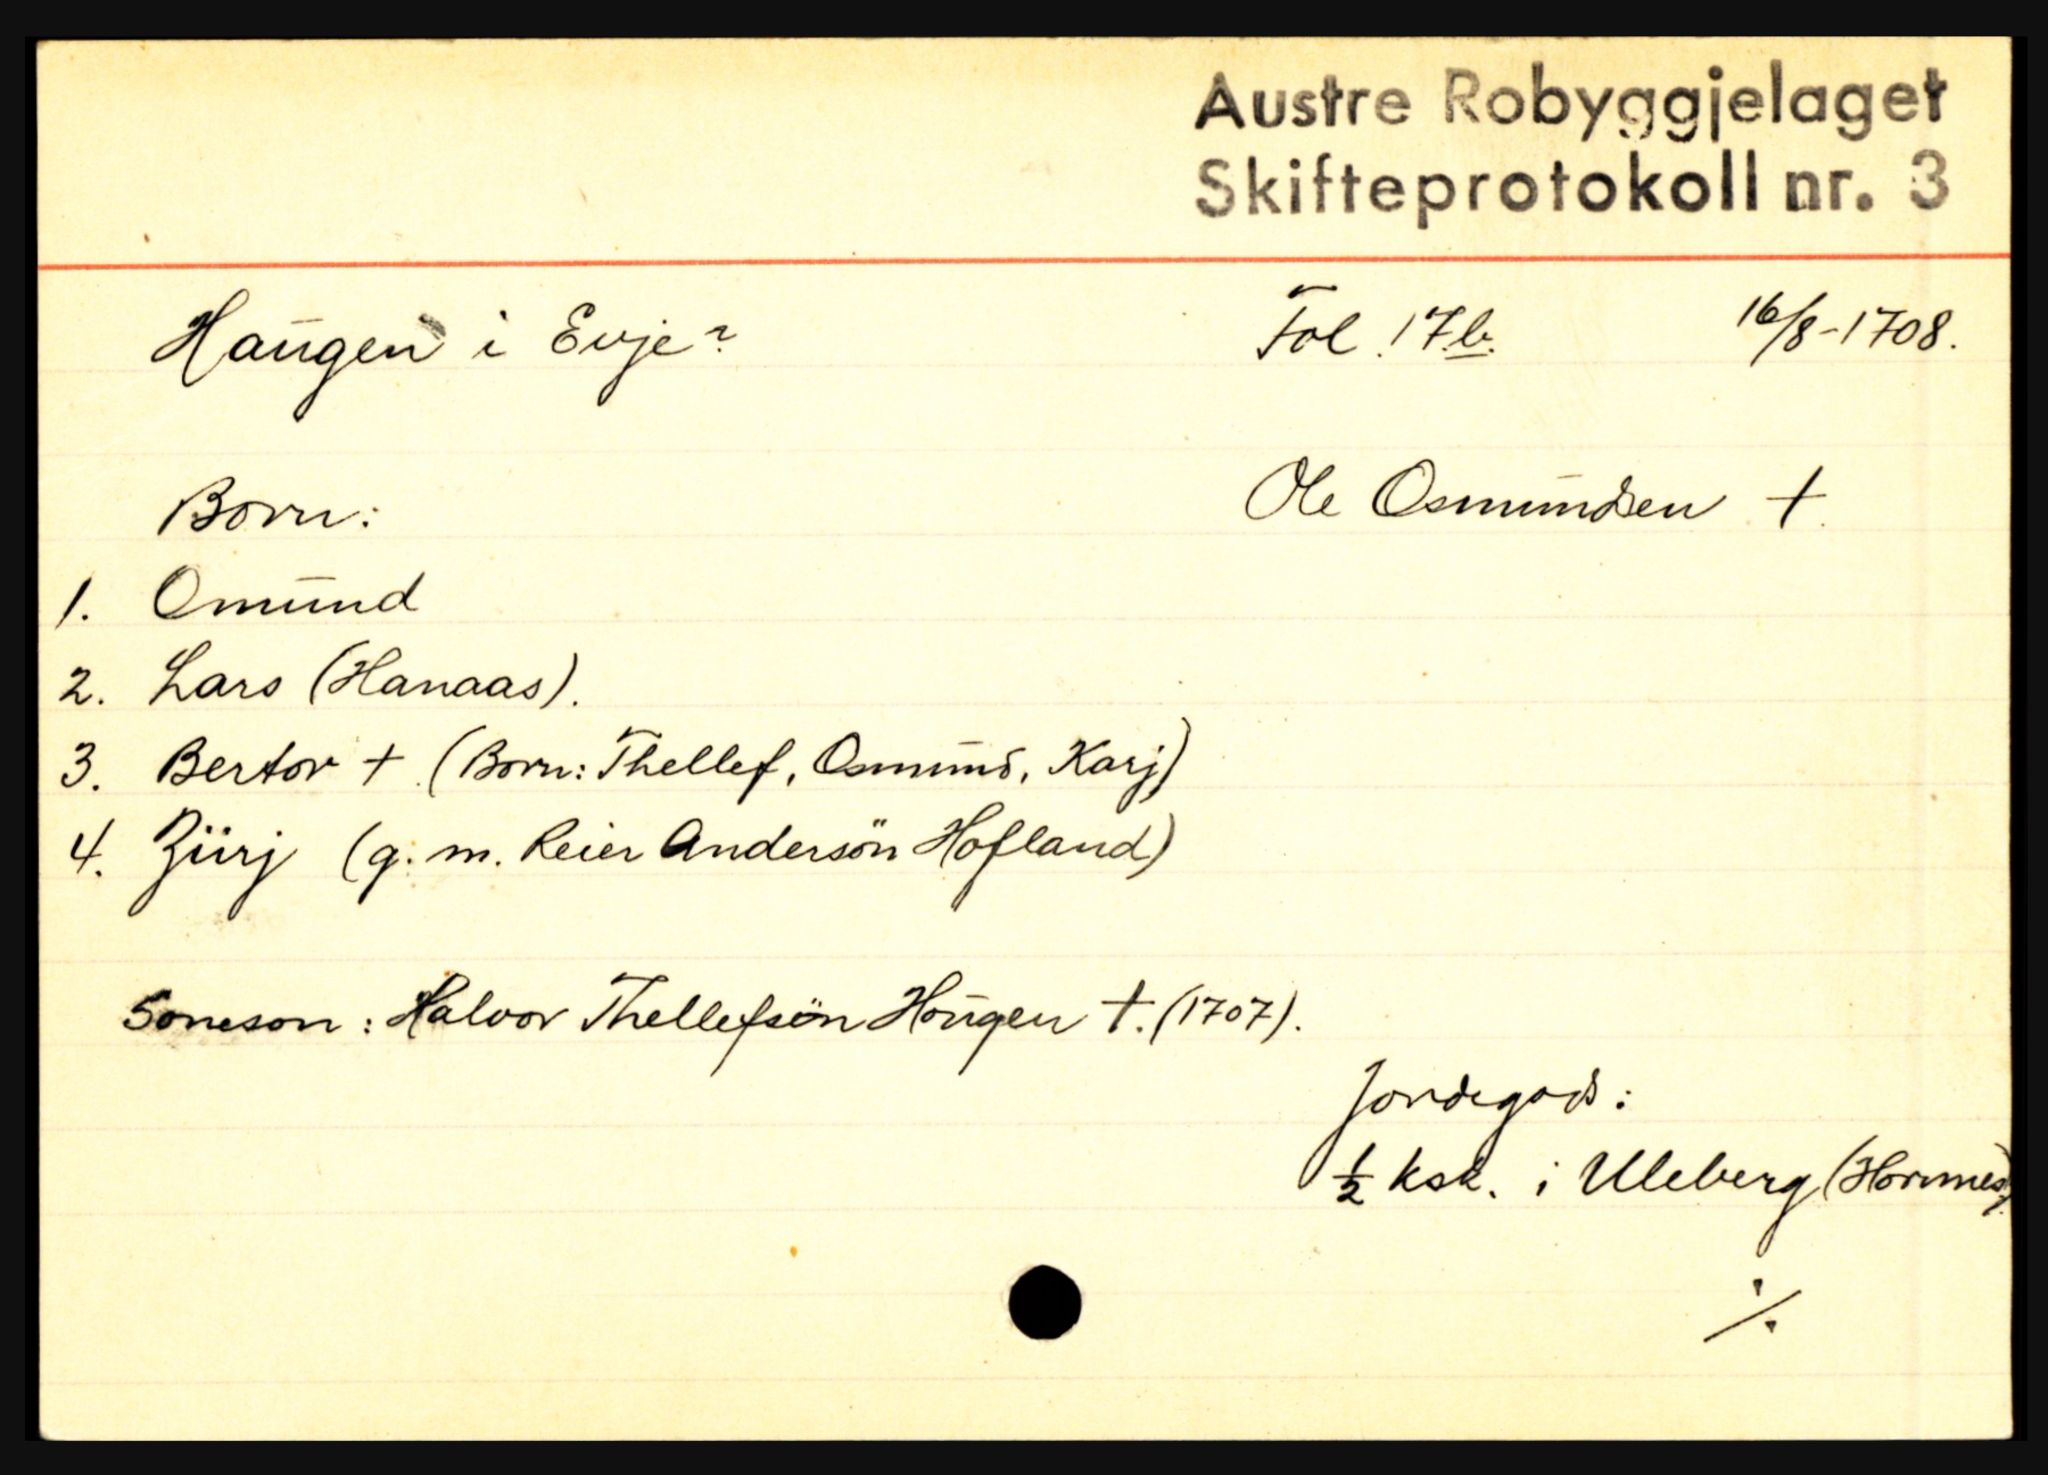 Austre Robyggjelaget
Skifteprotokoll nr. 3
Haugen i Evje? Fol. 17.b. 16/8-1708.
Born: Ole Osmundsen †.
1. Omund
2. Lars (Hanaas).
3. Bertor † (Born: Thellef, Osmund, Karj)
4. Zürj (g. m. Reier Andersön Hofland)
Soneson: Halvor Thellefsön Hougen †. (1707).
Jordegods:
½ ksk. i Uleberg (Hornnes).
⁒